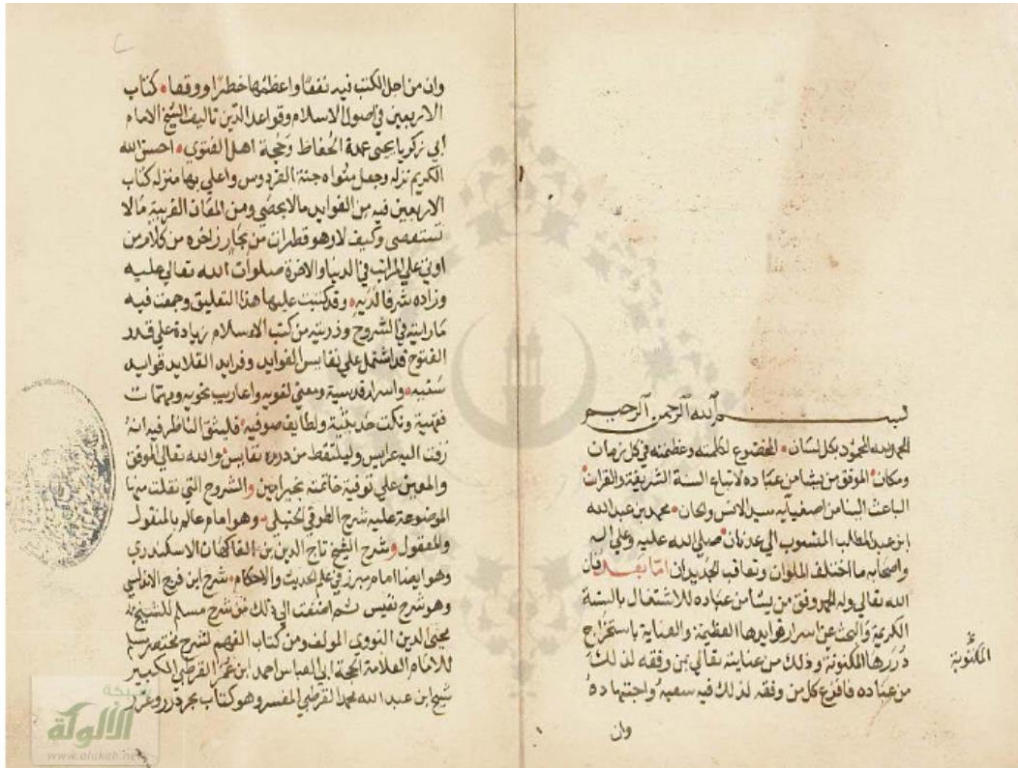 بسم الله الرحمن الرحيم
الحمد لله المحمود بكل لسان المخضوع لكلمته وعظمته في كل زمان
ومكان الموفق من يشا من عباده لاتباع السنة الشريفة والقران
الباعث الينا من اصفيايه سيد الانس والجان محمد بن عبد الله
ابن عبد المطلب المنسوب الي عدنان صلي الله عليه وعلي اله
واصحابه ما اختلف الملوان وتعاقب الجديدان اما بعد فان
الله تعالي وله الحمد وفق من يشا من عباده للاشتغال بالسنة
الكريمة والبحث عن اسرار فوايدها العظيمة والعناية باستخراج
دررها المكنونة وذلك من عنايته تعالي بمن وفقه لذلك
من عباده فافرغ كل من وفقه لذلك فيه سعيه واجتهاده
وان
وان من اجل الكتب فيه نفعا واعظمها خطرا ووقعا كتاب
الاربعين في اصول الاسلام وقواعد الدين تاليف الشيخ الامام
أبي زكريا يحيى عمدة الحفاظ وحجة اهل الفتوي احسن الله
الكريم نزله وجعل مثواه جنة الفردوس واعلي بها منزله كتاب
الاربعين فيه من الفوايد مالا يحصي ومن المعان الغريبة مالا
تستقصى وكيف لا وهو قطرات من بحار زاخره من كلام من
اوتي علي المراتب في الدنيا والاخرة صلوات الله تعالي عليه
وزاده شرفا لديه وقد كتبت عليها هذا التعليق وجمعت فيه
ما رايته في الشروح وذريته من كتب الاسلام زيادة علي قدر
الفتوح قد اشتمل علي نفايس الفوايد وفرايد القلايد فوايد
سنيه واسرار قدسية ومعني لغويه واعاريب نحويه ومهمات
فقهية ونكت حديثية ولطايف صوفيه فليثق الناظر فيه انه
زفت اليه عرايس وليلتقط من درره نفايس والله تعالي الموفق
والمعين علي توفية خاتمته بخير امين والشروح التي نقلت منها
الموضوعة عليه شرح الطوفي الحنبلي وهو امام عالم بالمنقول
والمعقول وشرح الشيخ تاج الدين بن الفاكهان الاسكندري
وهو ايضا امام مبرز في علم الحديث والاحكام شرح ابن فرح الاندلسي
وهو شرح نفيس ثم اضفت الي ذلك من شرح مسلم للشيخ
محيي الدين النووي المولف ومن كتاب المفهم لشرح مختصر مسلم
للامام العلامة الحجة ابي العباس احمد ابن عمر القرطبي الكبير
شيخ ابن عبد الله محمد القرطبي المفسر وهو كتاب بحر درر وغرر
المكنونة
شبكة
الألوكة
www.alukah.net